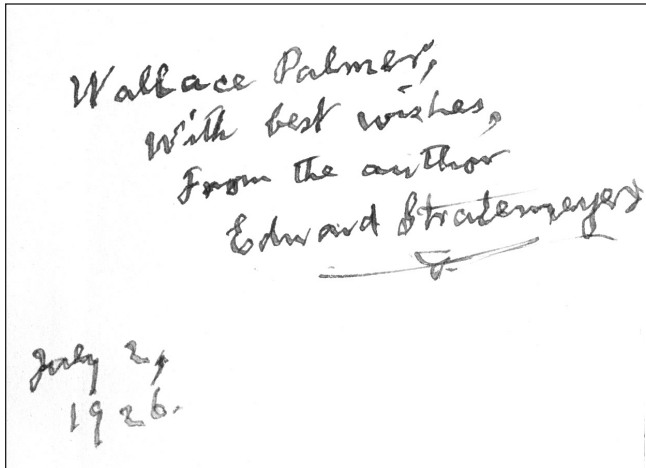 Wallace Palmer,
With best wishes,
From the author
Edward Stratemeyer
July 2,
1926.